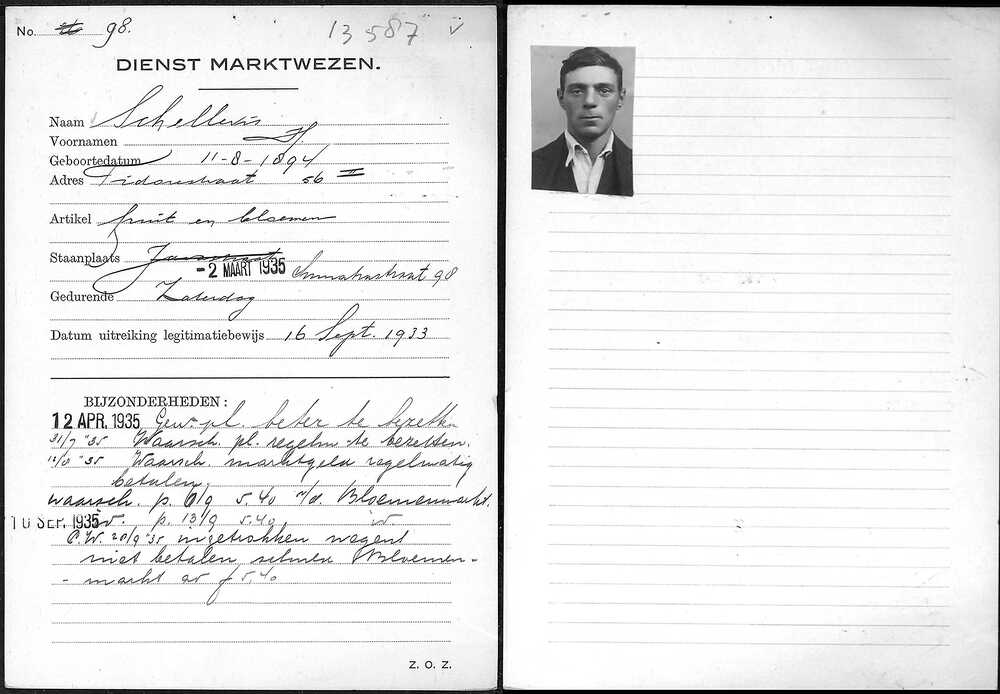 No. 98.
13587 v
DIENST MARKTWEZEN.
Naam Schellevis
Voornamen H.
Geboortedatum 11-8-1894
Adres Tidorestraat 56 II
Artikel fruit en bloemen
Staanplaats Javastraat
- 2 MAART 1935 Sumatrastraat 98
Gedurende Zaterdag
Datum uitreiking legitimatiebewijs 16 Sept. 1933
BIJZONDERHEDEN:
12 APR. 1935 Gew. pl. beter te bezetten
31/7 '35 Waarsch. pl. regelm. te bezetten.
'35 Waarsch. marktgeld regelmatig
betalen.
waarsch. p. 6/9 5.40 Bloemenmarkt.
10 SEP. 1935 p. 13/9 5.40
C.W. 20/9 '35 ingetrokken wegens
niet betalen schuld Bloemen-
- markt ad f 5.40
Z. O. Z.